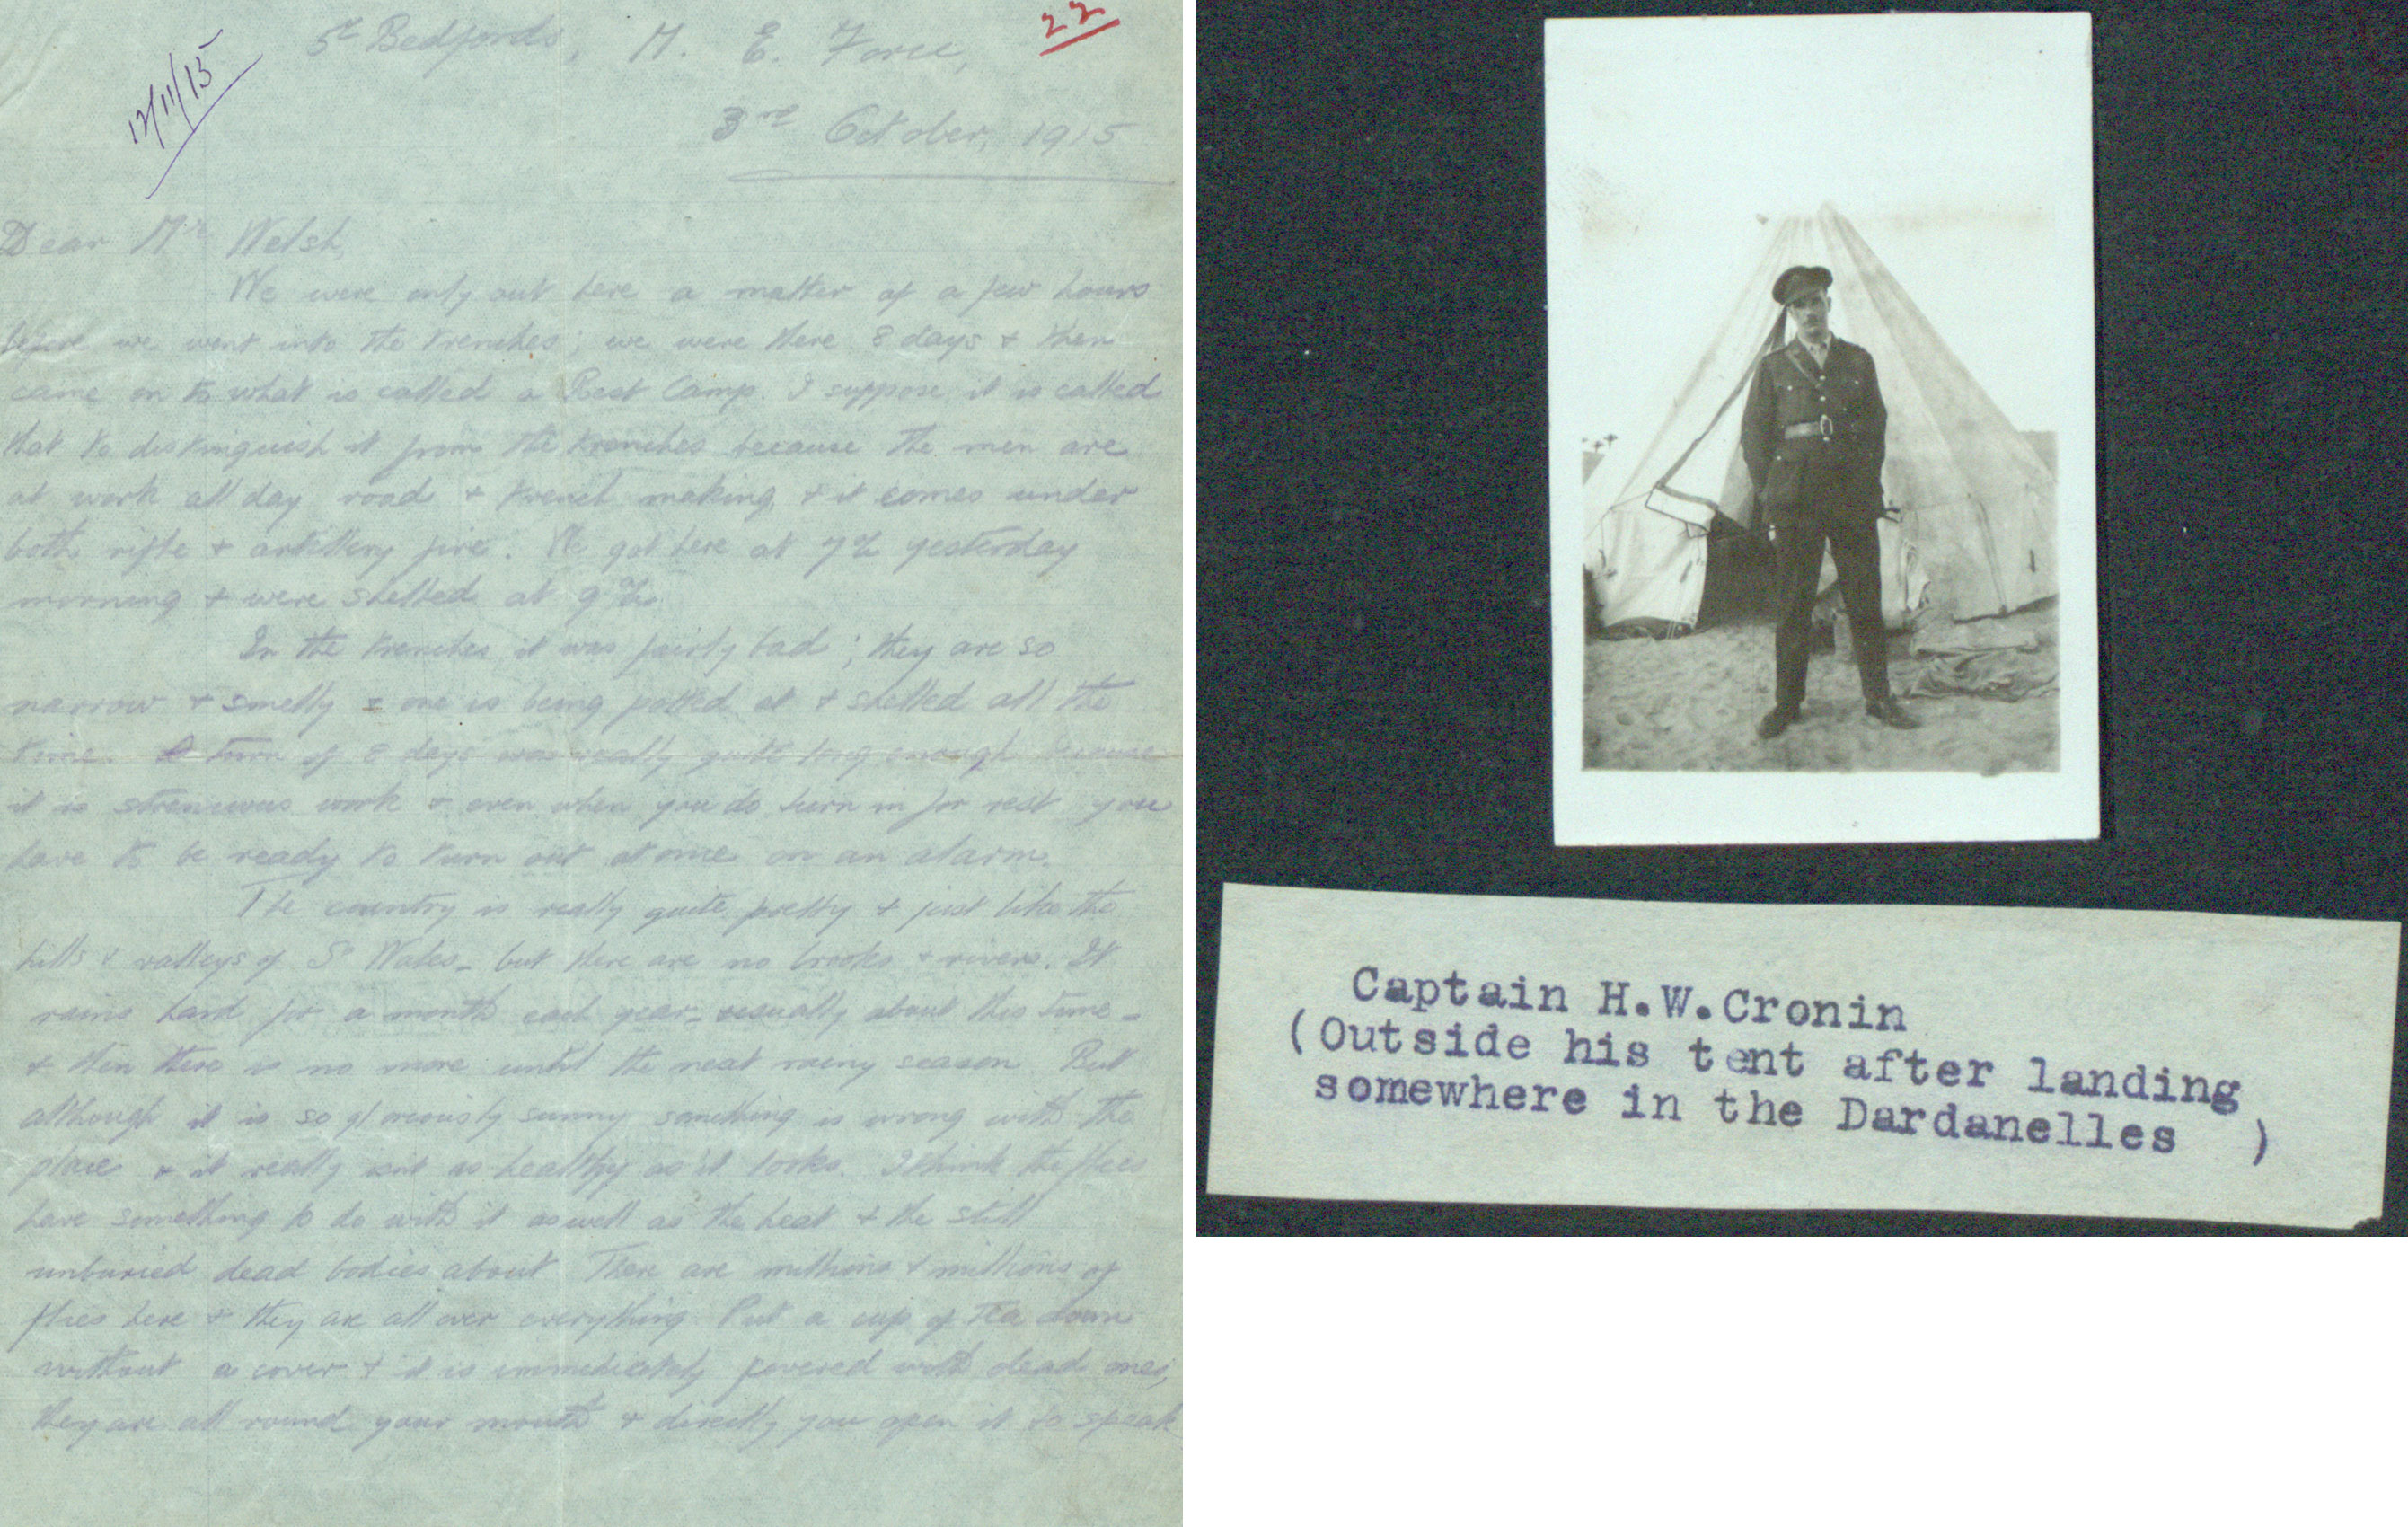 22
12/11/15
5th Bedfords, M. E. Force,
3rd October, 1915
Dear Mr Welsh,
We were only out here a matter of a few hours
before we went into the trenches; we were there 8 days & then
came on to what is called a Rest Camp. I suppose it is called
that to distinguish it from the trenches because the men are
at work all day road & trench making, & it comes under
both rifle & artillery fire. We got here at 7 yesterday
morning & were shelled at 9
In the trenches it was fairly bad; they are so
narrow & smelly & one is being potted at & shelled all the
time. A turn of 8 days was really quite long enough because
it is strenuous work & even when you do turn in for rest you
have to be ready to turn out at once on an alarm.
The country is really quite pretty & just like the
hills & valleys of So Wales - but there are no brooks & rivers. It
rains hard for a month each year - usually about this time -
& then there is no more until the next rainy season. But
although it is so gloriously sunny something is wrong with the
place & it really isn't as healthy as it looks. I think the flies
have something to do with it as well as the heat & the still
unburied dead bodies about. There are millions & millions of
flies here & they are all over everything. Put a cup of tea down
without a cover & it is immediately covered with dead ones,
they are all round your mouth & directly you open it to speak
Captain H.W.Cronin
(Outside his tent after landing
somewhere in the Dardanelles )